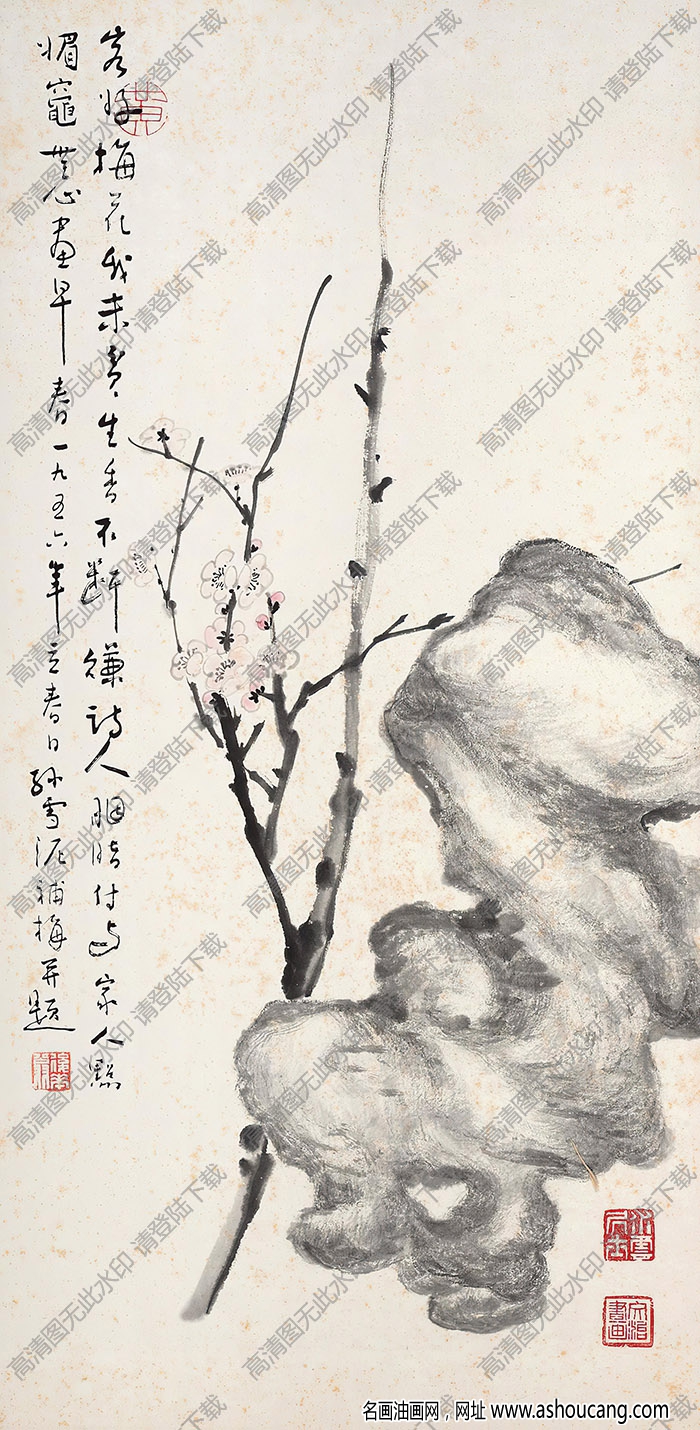 梅花我未貧生香不斷詩人胭脂付与家人點
媚竈無心畫早春一九五六年立春日孙雪泥補梅并題
高清图无此水印 请登陆下载
名画油画网，网址 www.ashoucang.com